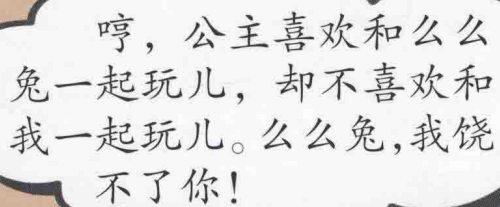 哼，公主喜欢和么么
兔一起玩儿，却不喜欢和
我一起玩儿。么么兔，我饶
不了你！